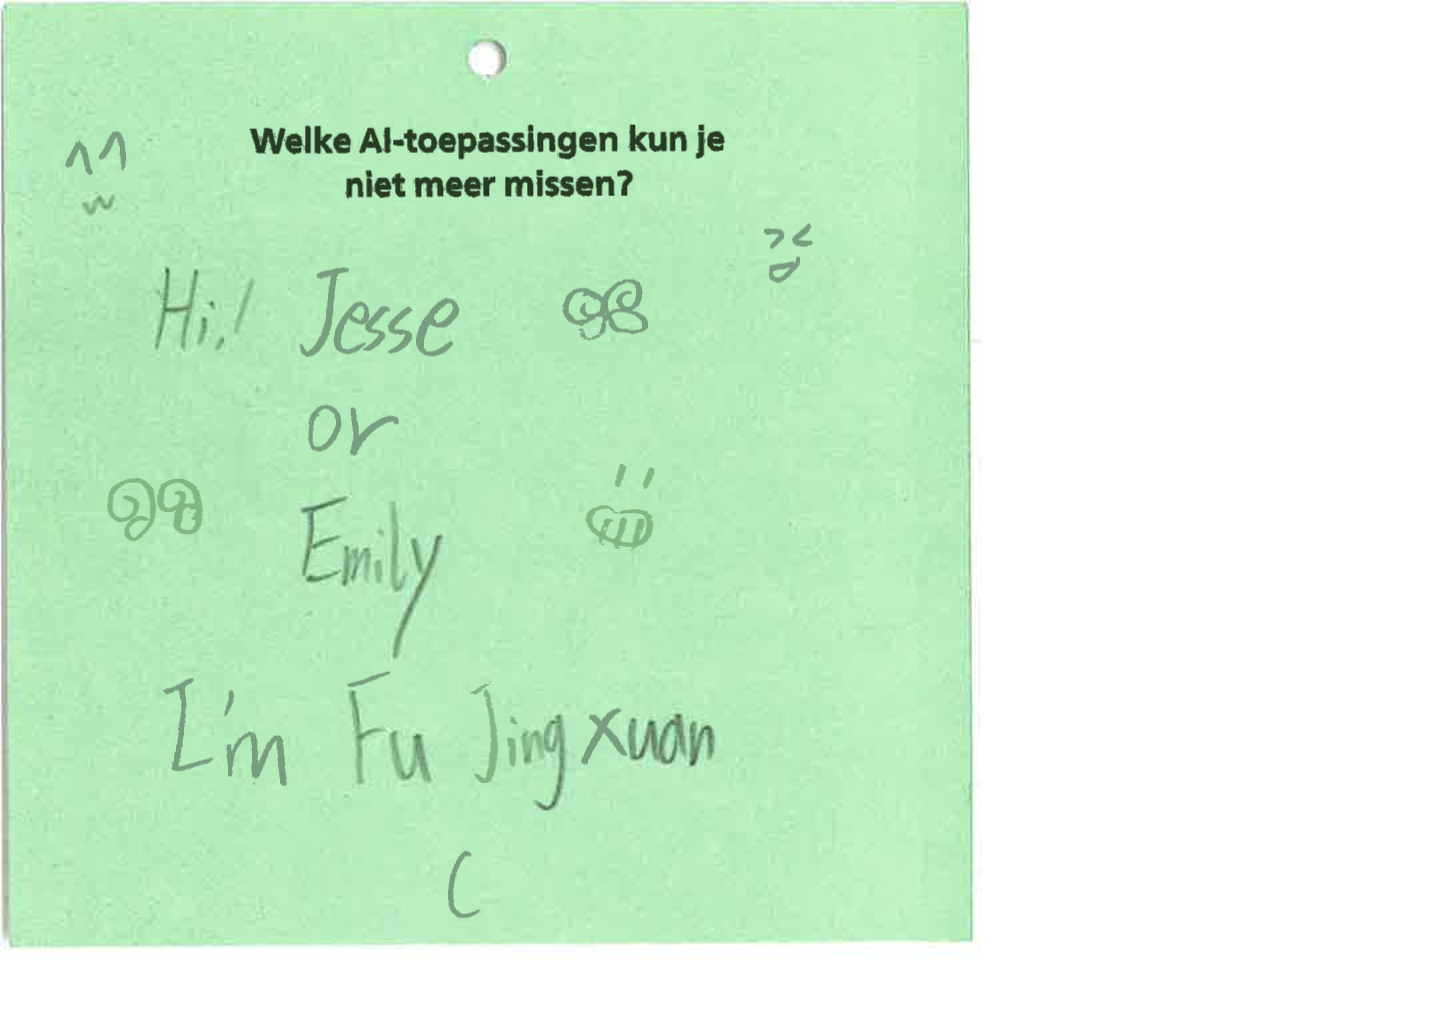 Welke AI-toepassingen kun je
niet meer missen?
Hi! Jesse
or
Emily
I'm Fu Jingxuan
C